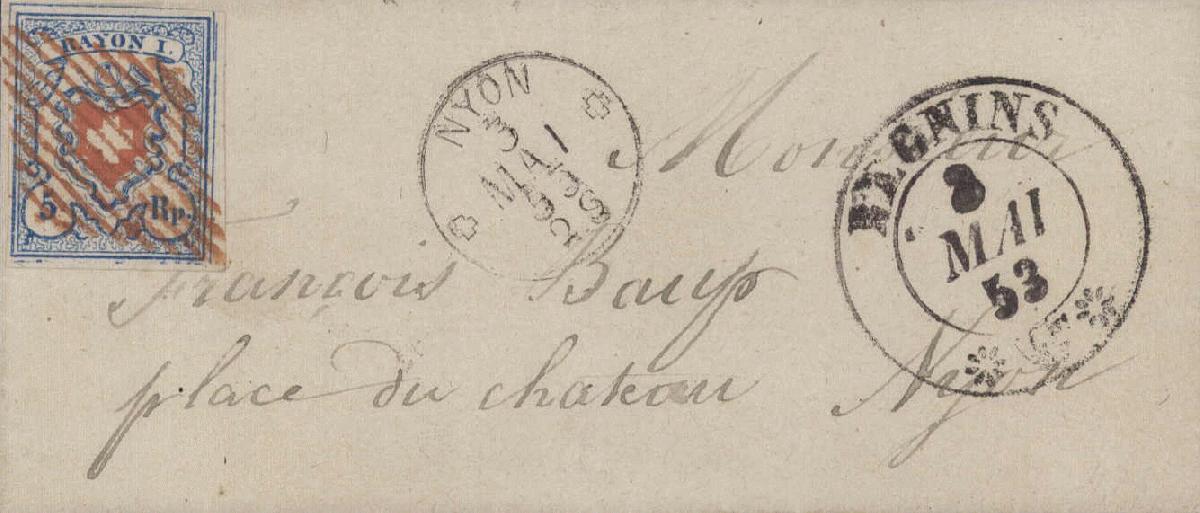 RAYON I.
5 Rp.
NYON
3
MAI
53
BEGNINS
3
MAI
53
Monsieur
François Baup
place du chateau Nyon